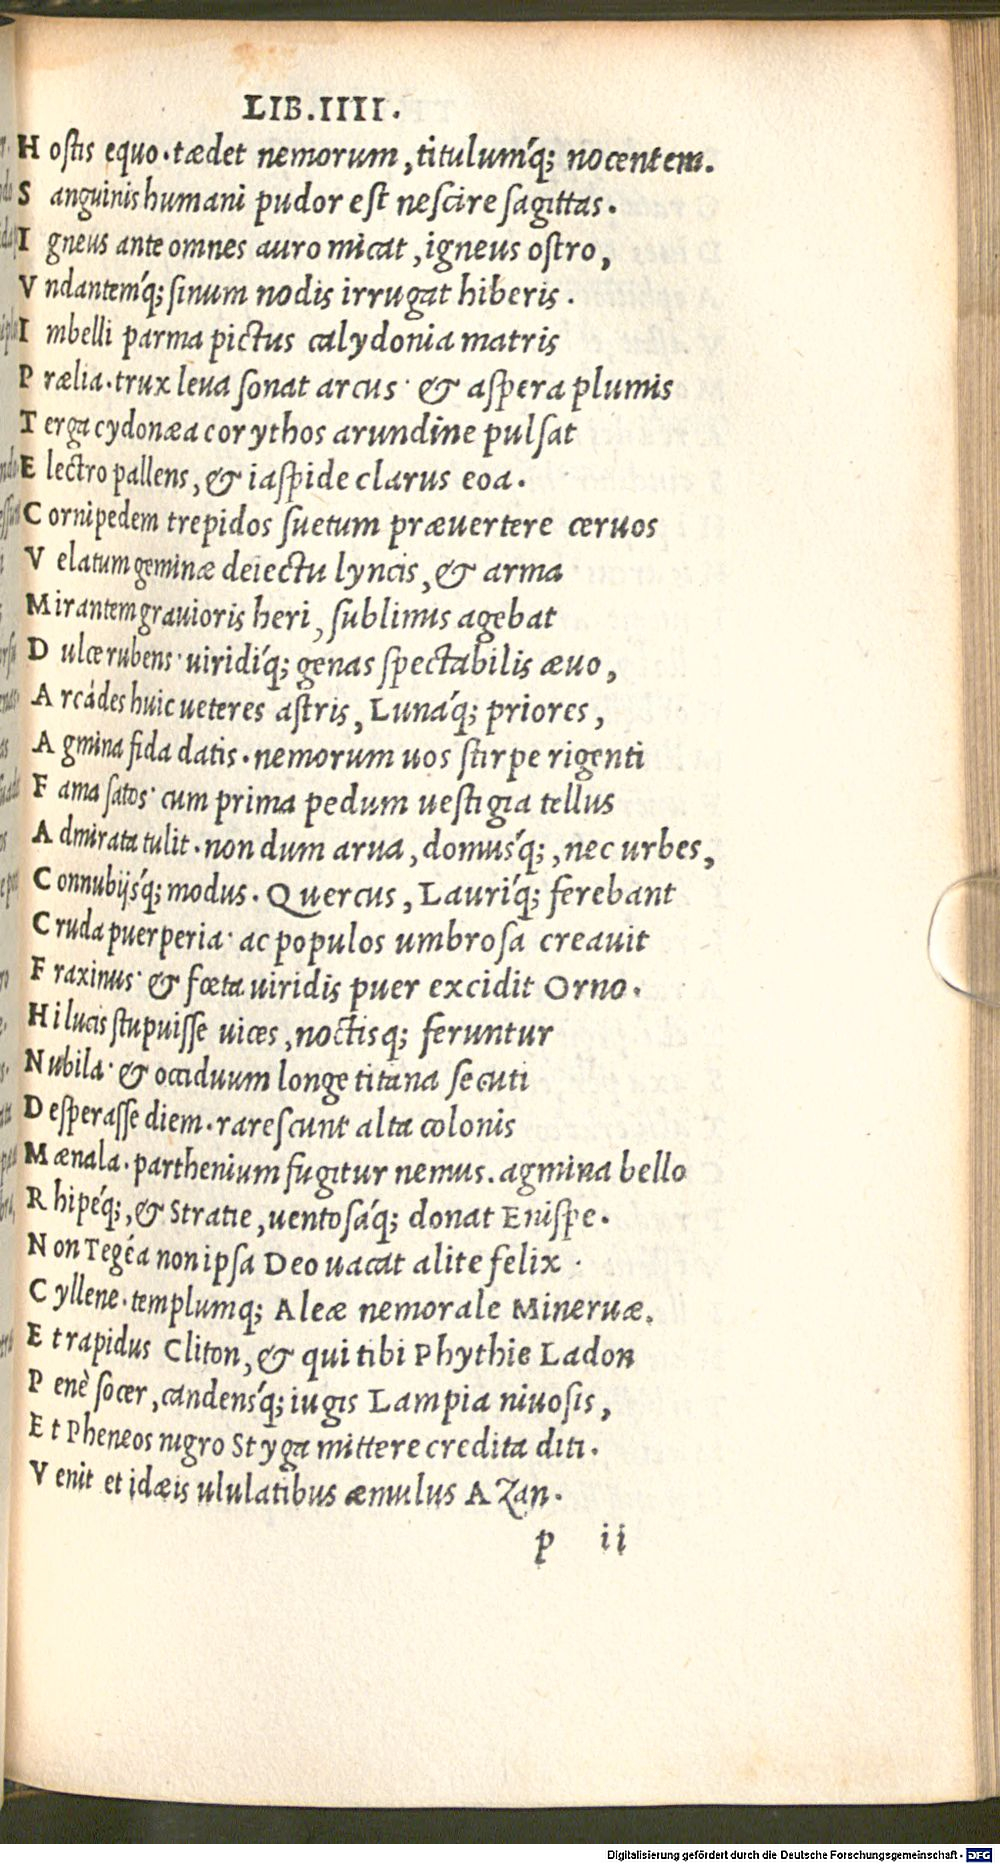 LIB.IIII.
H ostis equo. tædet nemorum, titulum´q; nocentem.
S anguinis humani pudor est nescire sagittas.
I gneus ante omnes auro micat, igneus ostro,
V ndantem´q; sinum nodis irrugat hiberis.
I mbelli parma pictus calydonia matris
P rælia. trux leua sonat arcus· & aspera plumis
T erga cydonæa corythos arundine pulsat
E lectro pallens, & iaspide clarus eoa.
C ornipedem trepidos suetum præuertere ceruos
V elatum geminæ deiectu lyncis, & arma
M irantem grauioris heri, sublimis agebat
D ulce rubens· uiridi´q; genas spectabilis æuo,
A rcádes huic ueteres astris, Luná´q; priores,
A gmina fida datis. nemorum uos stirpe rigenti
F ama satos· cum prima pedum uestigia tellus
A dmirata tulit. non dum arua, domus´q;, nec urbes,
C onnubijs´q; modus. Quercus, Lauri´q; ferebant
C ruda puerperia· ac populos umbrosa creauit
F raxinus· & fœta uiridis puer excidit Orno.
H i lucis stupuisse uices, noctisq; feruntur
N ubila· & occiduum longe titana secuti
D esperasse diem. rarescunt alta colonis
M ænala. parthenium fugitur nemus. agmina bello
R hipé´q;, & Stratie, uentosá´q; donat Enispe.
N on Tegéa non ipsa Deo uacat alite felix ·
C yllene. templumq; Aleæ nemorale Mineruæ.
E t rapidus Cliton, & qui tibi Phythie Ladon
P enè socer, candens´q; iugis Lampia niuosis,
E t Pheneos nigro Styga mittere credita diti.
V enit et idæis ululatibus æmulus AZan.
p ii
Digitalisierung gefördert durch die Deutsche Forschungsgemeinschaft · DFG